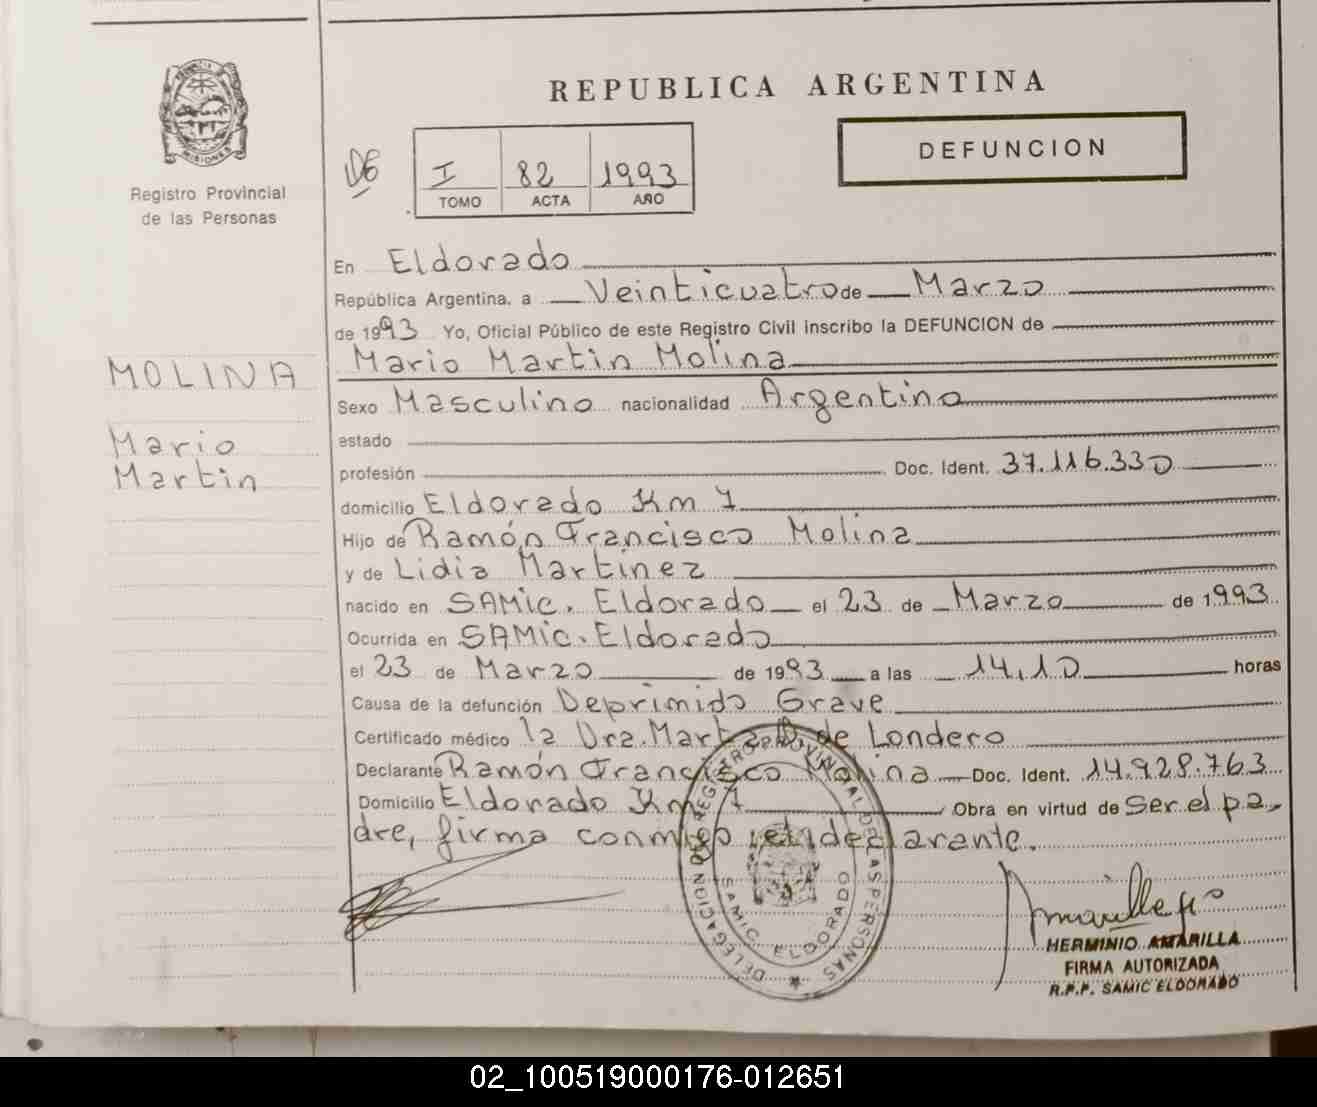 REPUBLICA ARGENTINA
DEFUNCION
PROVINCIA DE MISIONES
Registro Provincial
de las Personas
DE
I 82 1993
TOMO ACTA AÑO
En Eldorado
República Argentina, a Veinticuatro de Marzo
de 1993 Yo, Oficial Público de este Registro Civil inscribo la DEFUNCION de
MOLINA
Mario
Martin
Mario Martin Molina
Sexo Masculino nacionalidad Argentino
estado
profesión Doc. Ident. 37.116.330
domicilio Eldorado Km 7
Hijo de Ramón Francisco Molina
y de Lidia Martinez
nacido en SAMic. Eldorado el 23 de Marzo de 1993
Ocurrida en SAMic. Eldorado
el 23 de Marzo de 1993 a las 14,10 horas
Causa de la defunción Deprimido Grave
Certificado médico la Dra. Marta D. de Londero
Declarante Ramón Francisco Molina Doc. Ident. 14.928.763
Domicilio Eldorado Km 7 Obra en virtud de Ser el pa-
dre, firma conmigo el declarante.
DELEGACION DEL REGISTRO PROVINCIAL DE LAS PERSONAS
SAMIC. ELDORADO
HERMINIO AMARILLA
FIRMA AUTORIZADA
R.P.P. SAMIC ELDORADO
02_100519000176-012651